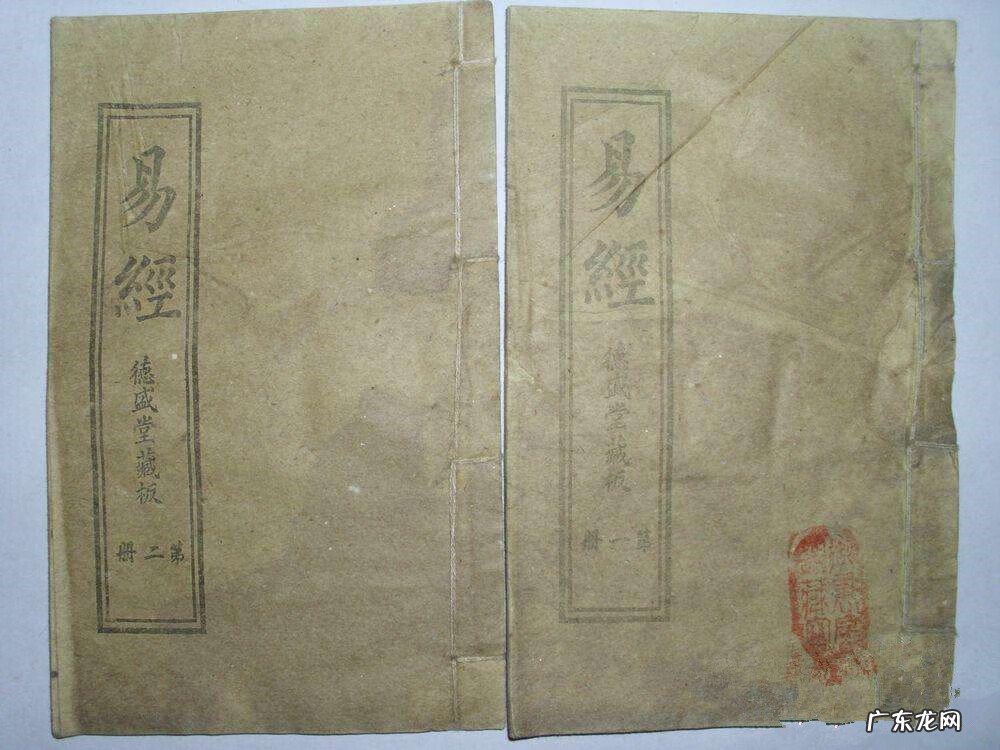 易經
德盛堂藏板
第二册
易經
德盛堂藏板
第一册
广东龙网